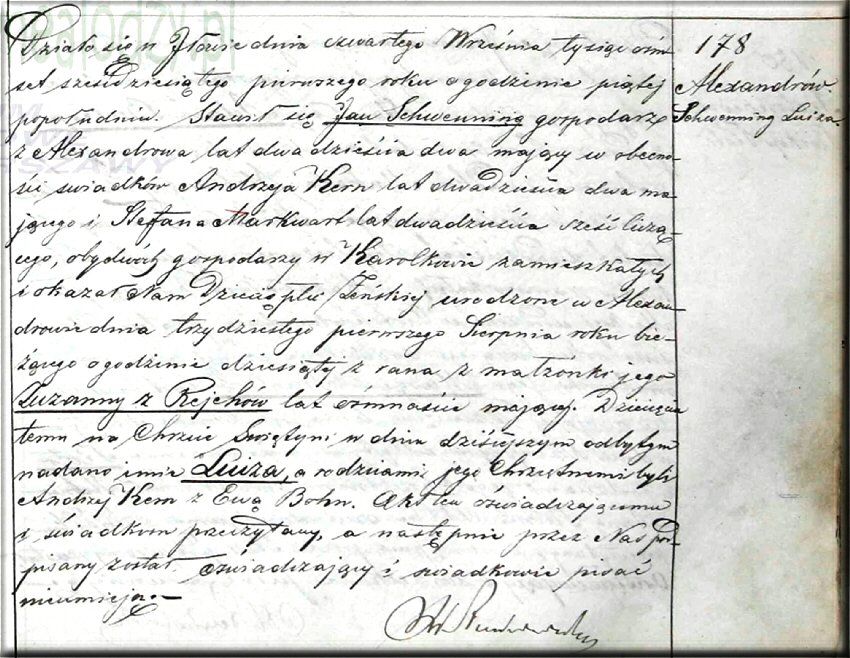 178
Alexandrów.
Schwenning Luiza.
Działo się w Iłowie dnia czwartego Września tysiąc ośm
set sześćdziesiątego pierwszego roku o godzinie piątej
popołudniu. Stawił się Jan Schwenning gospodarz
z Alexandrowa lat dwadzieścia dwa mający w obecno-
ści świadków Andrzeja Kern lat dwadzieścia dwa ma-
jącego i Stefana Markwart lat dwadzieścia sześć liczą-
cego, obydwóch gospodarzy w Karolkowie zamieszkałych
i okazał Nam Dziecię płci Żeńskiej urodzone w Alexan-
drowie dnia trzydziestego pierwszego Sierpnia roku bie-
żącego o godzinie dziesiątej z rana z małżonki jego
Zuzanny z Rejchów lat ośmnaście mającej. Dziecięciu
temu na Chrzcie Świętym w dniu dzisiejszym odbytym
nadano imie Luiza, a rodzicami jego Chrzestnemi byli
Andrzej Kern z Ewą Bohn. Akt ten oświadczającemu
i świadkom przeczytany, a następnie przez Nas pod-
pisany został. Oświadczający i świadkowie pisać
nieumieją.-